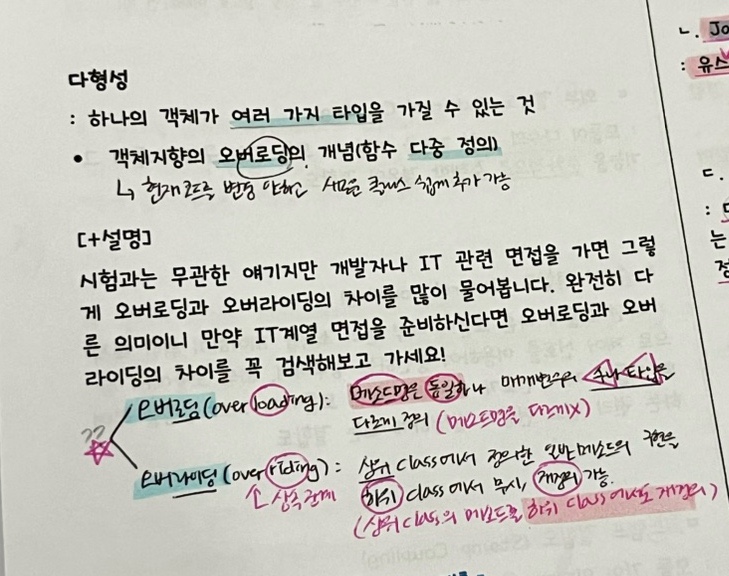 다형성
: 하나의 객체가 여러 가지 타입을 가질 수 있는 것
• 객체지향의 오버로딩의 개념(함수 다중 정의)
↳ 현재 코드를 변경 안하고 새로운 클래스 쉽게 추가 가능
[+설명]
시험과는 무관한 얘기지만 개발자나 IT 관련 면접을 가면 그렇
게 오버로딩과 오버라이딩의 차이를 많이 물어봅니다. 완전히 다
른 의미이니 만약 IT계열 면접을 준비하신다면 오버로딩과 오버
라이딩의 차이를 꼭 검색해보고 가세요!
??
오버로딩(overloading): 메소드명은 동일하나 매개변수의 수나 타입을
다르게 정의 (메소드명을 다르게X)
오버라이딩(overriding): 상위 class에서 정의한 일반 메소드의 구현을
↑ 상속관계
하위 class에서 무시, 재정의 가능.
(상위 class의 메소드를 하위 class에서도 재정의)
ㄴ. Jo
: 유스
ㄷ.
:
는
정